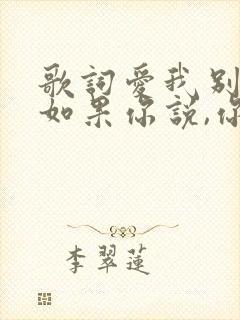 歌詞愛我別
如果你說,你
李翠蓮